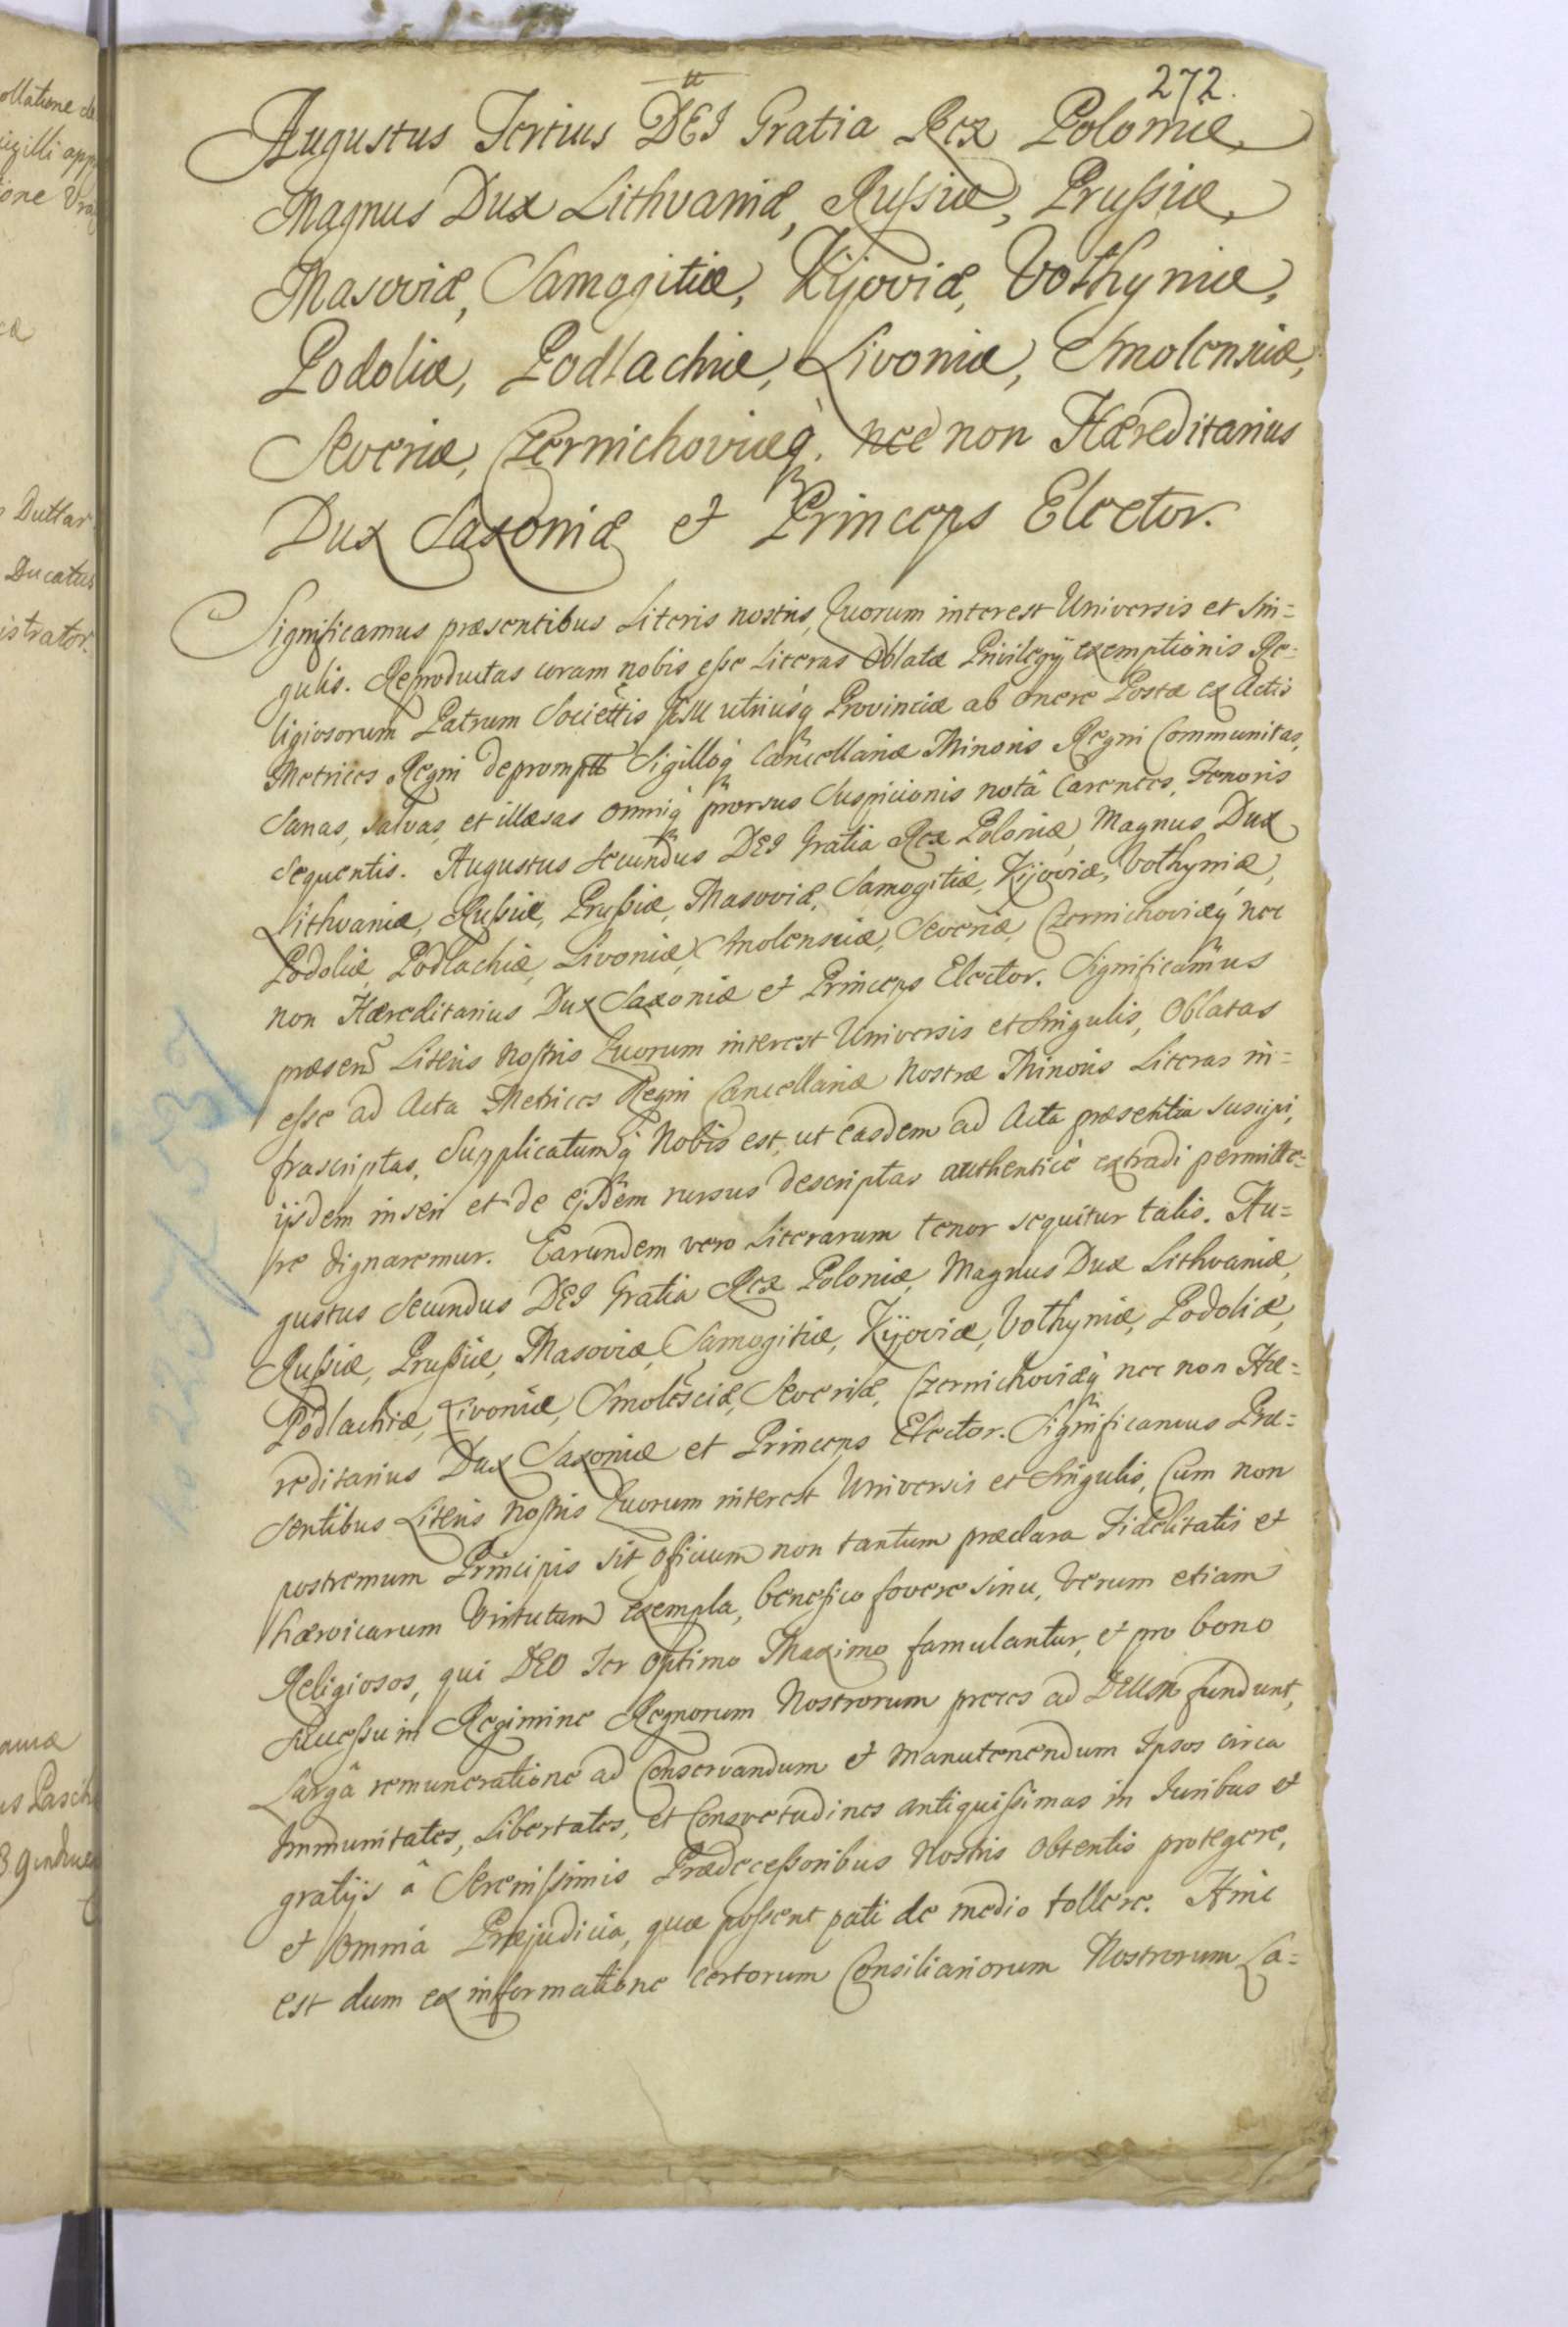 272.
Augustus Tertius DEI Gratia Rex Poloniæ,
Magnus Dux Lithvaniæ, Russiæ, Prussiæ,
Masoviæ, Samogitiæ, Kijoviæ, Volhyniæ,
Podoliæ, Podlachiæ, Livoniæ, Smolensiæ,
Severiæ, Czernichoviæq́, nec non Hæreditarius
Dux Saxoniæ et Princeps Elector.
Significamus præsentibus Literis nostris, Quorum interest Universis et Sin=
gulis. Reproductas coram nobis esse Literas Oblatæ Privilegÿ exemptionis Re=
ligiosorum Patrum Societtis JESU utriusq́ Provinciæ ab onere Postæ ex Actis
Metrices Regni depromptt Sigilloq́ Cancellariæ Minoris Regni Communitas,
Sanas, salvas, et illæsas omniq́ prorsus Suspicionis notâ Carentes, Tenoris
sequentis. Augustus Secundus DEI Gratia Rex Poloniæ, Magnus Dux
Lithvaniæ, Russiæ, Prussiæ, Masoviæ, Samogitiæ, Kijoviæ, Volhyniæ,
Podoliæ, Podlachiæ, Livoniæ, Smolensiæ, Severiæ, Czernichoviæq́ nec
non Hæreditarius Dux Saxoniæ et Princeps Elector. Significamus
præsen Literis Nostris Quorum interest Universis et Singulis, Oblatas
esse ad Acta Metrices Regni Cancellariæ Nostræ Minoris Literas in=
frascriptas, Supplicatumq́ Nobis est, ut easdem ad Acta præsentia suscipi,
ijsdem inseri et de ejsdem rursus descriptas authenticè extradi permitte=
re dignaremur. Earundem vero Literarum tenor sequitur talis. Au=
gustus Secundus DEI Gratia Rex Poloniæ, Magnus Dux Lithvaniæ,
Russiæ, Prussiæ, Masoviæ, Samogitiæ, Kijoviæ, Volhyniæ, Podoliæ,
Podlachiæ, Livoniæ, Smolesciæ, Severiæ, Czernichoviæq́ nec non Hæ=
reditarius Dux Saxoniæ et Princeps Elector. Significamus Præ=
sentibus Literis Nostris Quorum interest Universis et Singulis, Cum non
postremum Principis sit oficium non tantum præclara Fidelitatis et
hæroicarum Virtutum exempla, benefico fovere sinu, Verum etiam
Religiosos, qui DEO Ter Optimo Maximo famulantur, et pro bono
successu in Regimine Regnorum Nostrorum preces ad DEUM fundunt,
Largâ remuneratione ad Conservandum et Manutenendum Ipsos circa
Immunitates, Libertates, et Consvetudines antiquissimas in Juribus et
gratijs â Serenissimis Prædecessoribus Nostris obtentis protegere,
et omnia Præjudicia, quæ possent pati de medio tollere. Hinc
est dum ex informatione Certorum Consiliariorum Nostrorum La=